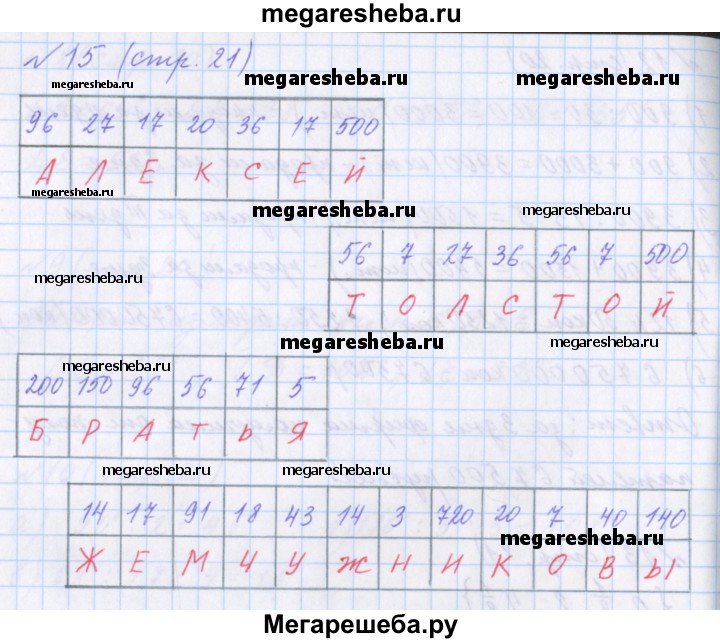 megaresheba.ru
№15 (стр. 21)
megaresheba.ru megaresheba.ru megaresheba.ru
96 27 17 20 36 17 500
А Л Е К С Е Й
megaresheba.ru
megaresheba.ru megaresheba.ru
56 7 27 36 56 7 500
megaresheba.ru
Т О Л С Т О Й
megaresheba.ru
megaresheba.ru megaresheba.ru
200 150 96 56 71 5
Б Р А Т Ь Я
megaresheba.ru megaresheba.ru
14 17 91 18 43 14 3 720 20 7 40 140
megaresheba.ru
Ж Е М Ч У Ж Н И К О В Ы
Мегарешеба.ру